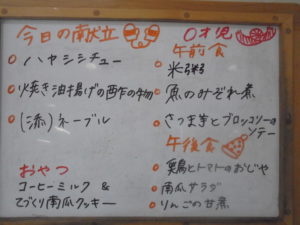 今日の献立
○ ハヤシシチュー
○ 焼き油揚げの酢の物
○ (添)ネーブル
おやつ
コーヒーミルク &
てづくり南瓜クッキー
0才児
午前食
○ 米粥
○ 魚のみぞれ煮
○ さつま芋とブロッコリーの
ソテー
午後食
○ 鶏とトマトのおじや
○ 南瓜サラダ
○ りんごの甘煮